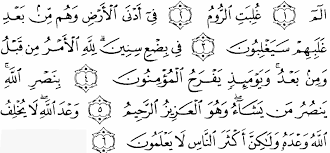 الٓمٓ ۝١ غُلِبَتِ الرُّومُ ۝٢ فِىٓ أَدْنَى الْأَرْضِ وَهُم مِّنۢ بَعْدِ
غَلَبِهِمْ سَيَغْلِبُونَ ۝٣ فِى بِضْعِ سِنِينَ ۗ لِلَّهِ الْأَمْرُ مِن قَبْلُ
وَمِنۢ بَعْدُ ۚ وَيَوْمَئِذٍ يَفْرَحُ الْمُؤْمِنُونَ ۝٤ بِنَصْرِ اللَّهِ ۚ
يَنصُرُ مَن يَشَآءُ ۖ وَهُوَ الْعَزِيزُ الرَّحِيمُ ۝٥ وَعْدَ اللَّهِ ۖ لَا يُخْلِفُ
اللَّهُ وَعْدَهُۥ وَلَٰكِنَّ أَكْثَرَ النَّاسِ لَا يَعْلَمُونَ ۝٦